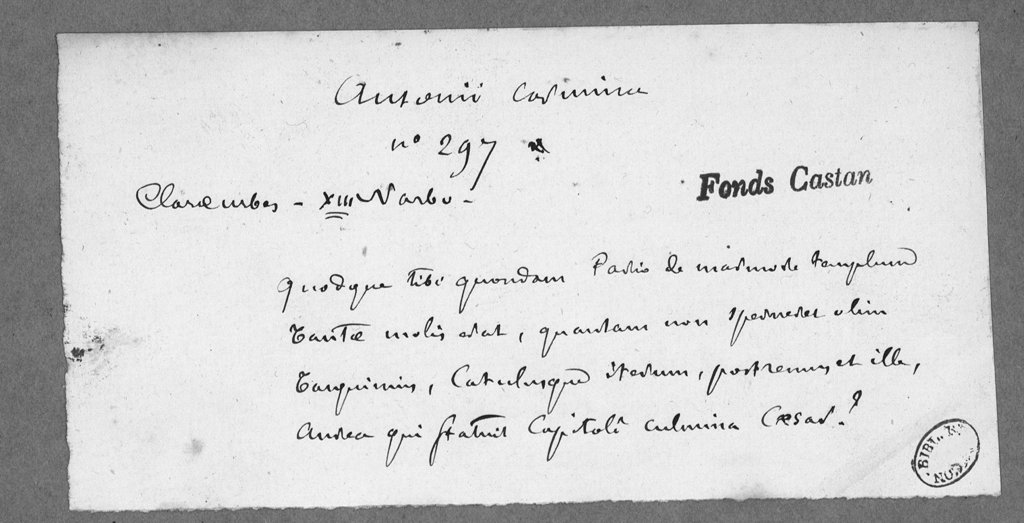 Ausonii Carmina
n° 297
Fonds Castan
Claræ urbes - XIII Narbo -
Quodque tibi quondam Pario de marmore templum
Tantæ molis erat, quantam non sperneret olim
Tarquinius, Catulusque iterum, postremus et ille,
Aurea qui statuit Capitoli culmina Cæsar?
BIBL.